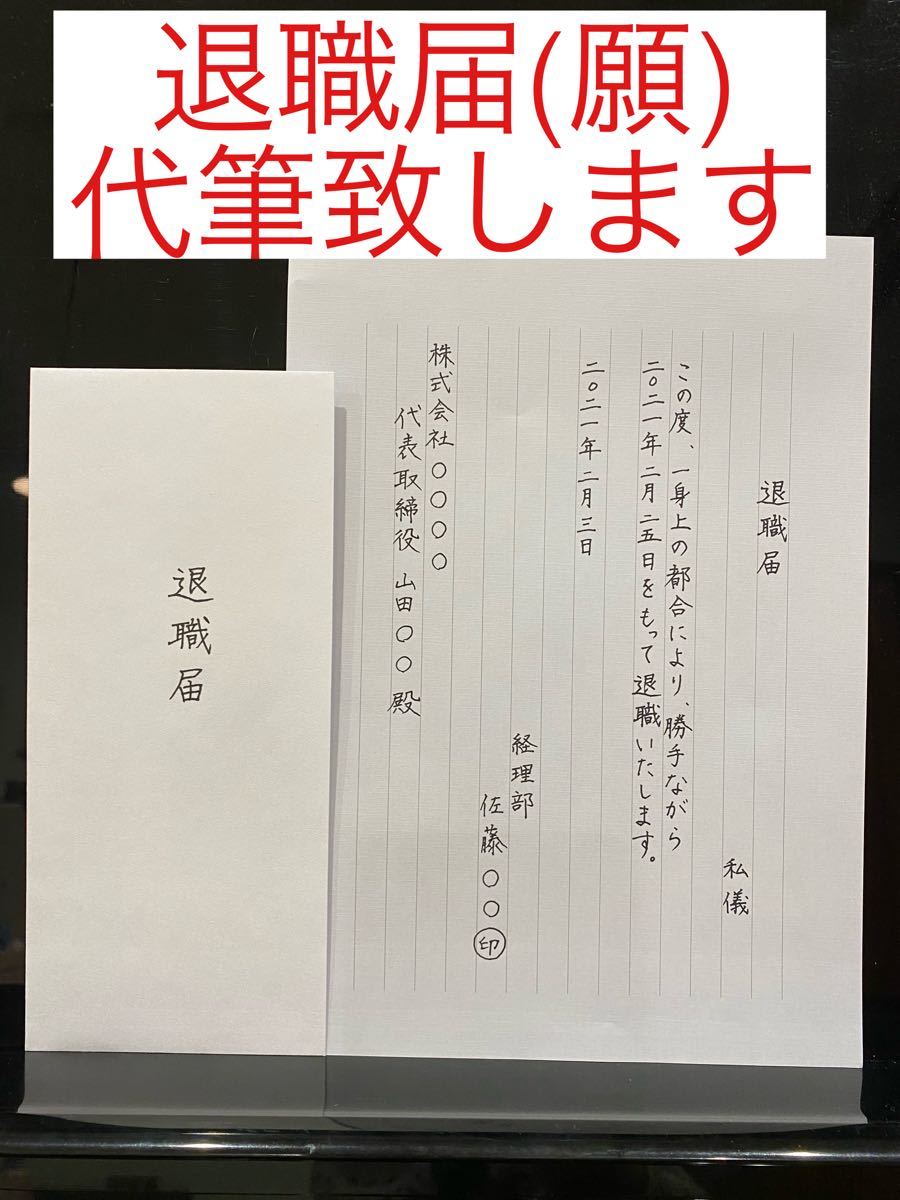 退職届(願)
代筆致します
退職届
私儀
この度、一身上の都合により、勝手ながら
二〇二一年二月二五日をもって退職いたします。
二〇二一年二月三日
経理部
佐藤〇〇印
株式会社〇〇〇〇
代表取締役 山田〇〇殿
退職届